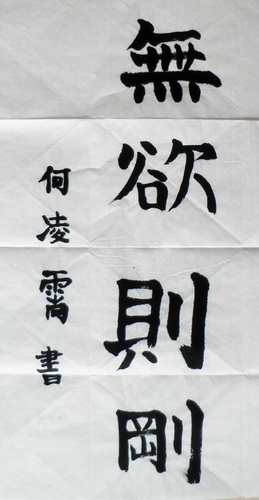 無欲則剛
何凌霄書